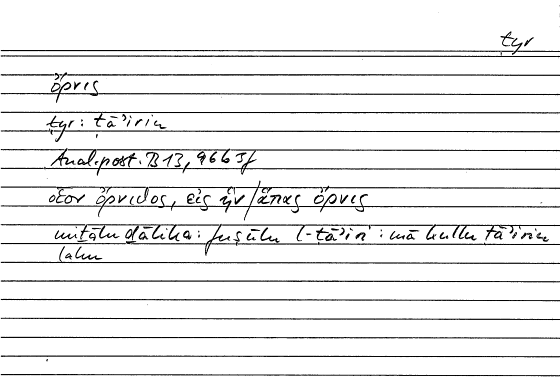 ṭyr
ὄρνις
ṭyr: ṭāʾirin
Anal. post. B 13, 96b
οἷον ὄρνιθος, εἰς ἣν/ἅπας ὄρνις
miṯālu ḏālika: fuṣūlu l-ṭāʾiri: mā kullu ṭāʾirin
lahu